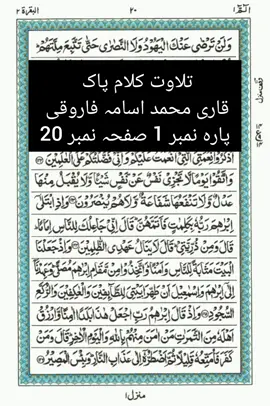 البقرة ٢
٢٠
وَلَنْ تَرْضٰى عَنْكَ الْيَهُوْدُ وَلَا النَّصٰرٰى حَتّٰى تَتَّبِعَ مِلَّتَهُمْ
تلاوت کلام پاک
قاری محمد اسامہ فاروقی
پارہ نمبر 1 صفحہ نمبر 20
اذْكُرُوْا نِعْمَتِيَ الَّتِيْٓ اَنْعَمْتُ عَلَيْكُمْ وَاَنِّيْ فَضَّلْتُكُمْ عَلَى الْعٰلَمِيْنَ
وَاتَّقُوْا يَوْمًا لَّا تَجْزِيْ نَفْسٌ عَنْ نَّفْسٍ شَيْـًٔا وَّلَا يُقْبَلُ مِنْهَا
عَدْلٌ وَّلَا تَنْفَعُهَا شَفَاعَةٌ وَّلَا هُمْ يُنْصَرُوْنَ وَاِذِ ابْتَلٰٓى
اِبْرٰهٖمَ رَبُّهٗ بِكَلِمٰتٍ فَاَتَمَّهُنَّ قَالَ اِنِّيْ جَاعِلُكَ لِلنَّاسِ اِمَامًا
قَالَ وَمِنْ ذُرِّيَّتِيْ قَالَ لَا يَنَالُ عَهْدِي الظّٰلِمِيْنَ وَاِذْ جَعَلْنَا
الْبَيْتَ مَثَابَةً لِّلنَّاسِ وَاَمْنًا وَاتَّخِذُوْا مِنْ مَّقَامِ اِبْرٰهٖمَ مُصَلًّى وَعَهِدْنَآ
اِلٰٓى اِبْرٰهٖمَ وَاِسْمٰعِيْلَ اَنْ طَهِّرَا بَيْتِيَ لِلطَّآئِفِيْنَ وَالْعٰكِفِيْنَ وَالرُّكَّعِ
السُّجُوْدِ وَاِذْ قَالَ اِبْرٰهٖمُ رَبِّ اجْعَلْ هٰذَا بَلَدًا اٰمِنًا وَّارْزُقْ
اَهْلَهٗ مِنَ الثَّمَرٰتِ مَنْ اٰمَنَ مِنْهُمْ بِاللّٰهِ وَالْيَوْمِ الْاٰخِرِ قَالَ وَمَنْ
كَفَرَ فَاُمَتِّعُهٗ قَلِيْلًا ثُمَّ اَضْطَرُّهٗٓ اِلٰى عَذَابِ النَّارِ وَبِئْسَ الْمَصِيْرُ
منزل ١